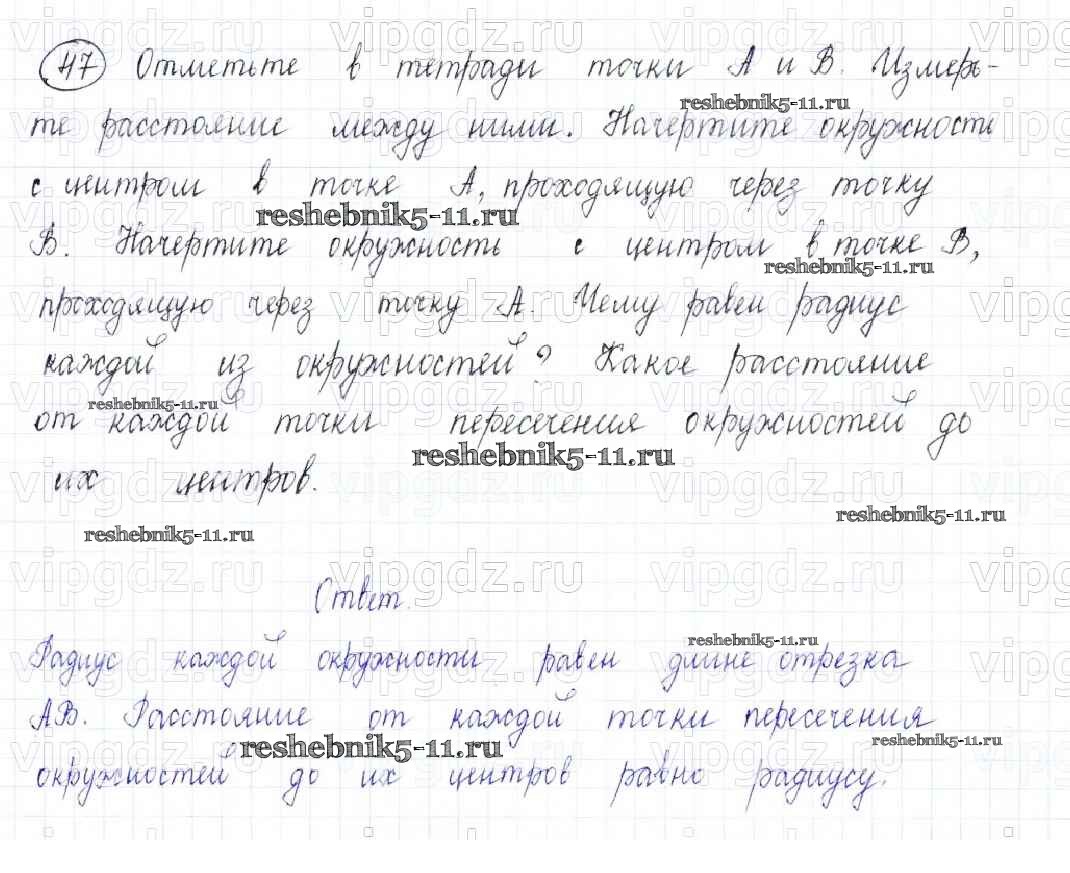 47 Отметьте в тетради точки А и В. Измерь-
те расстояние между ними. Начертите окружность
с центром в точке А, проходящую через точку
В. Начертите окружность с центром в точке В,
проходящую через точку А. Чему равен радиус
каждой из окружностей? Какое расстояние
от каждой точки пересечения окружностей до
их центров.
Ответ.
Радиус каждой окружности равен длине отрезка
АВ. Расстояние от каждой точки пересечения
окружностей до их центров равно радиусу.
reshebnik5-11.ru
vipgdz.ru